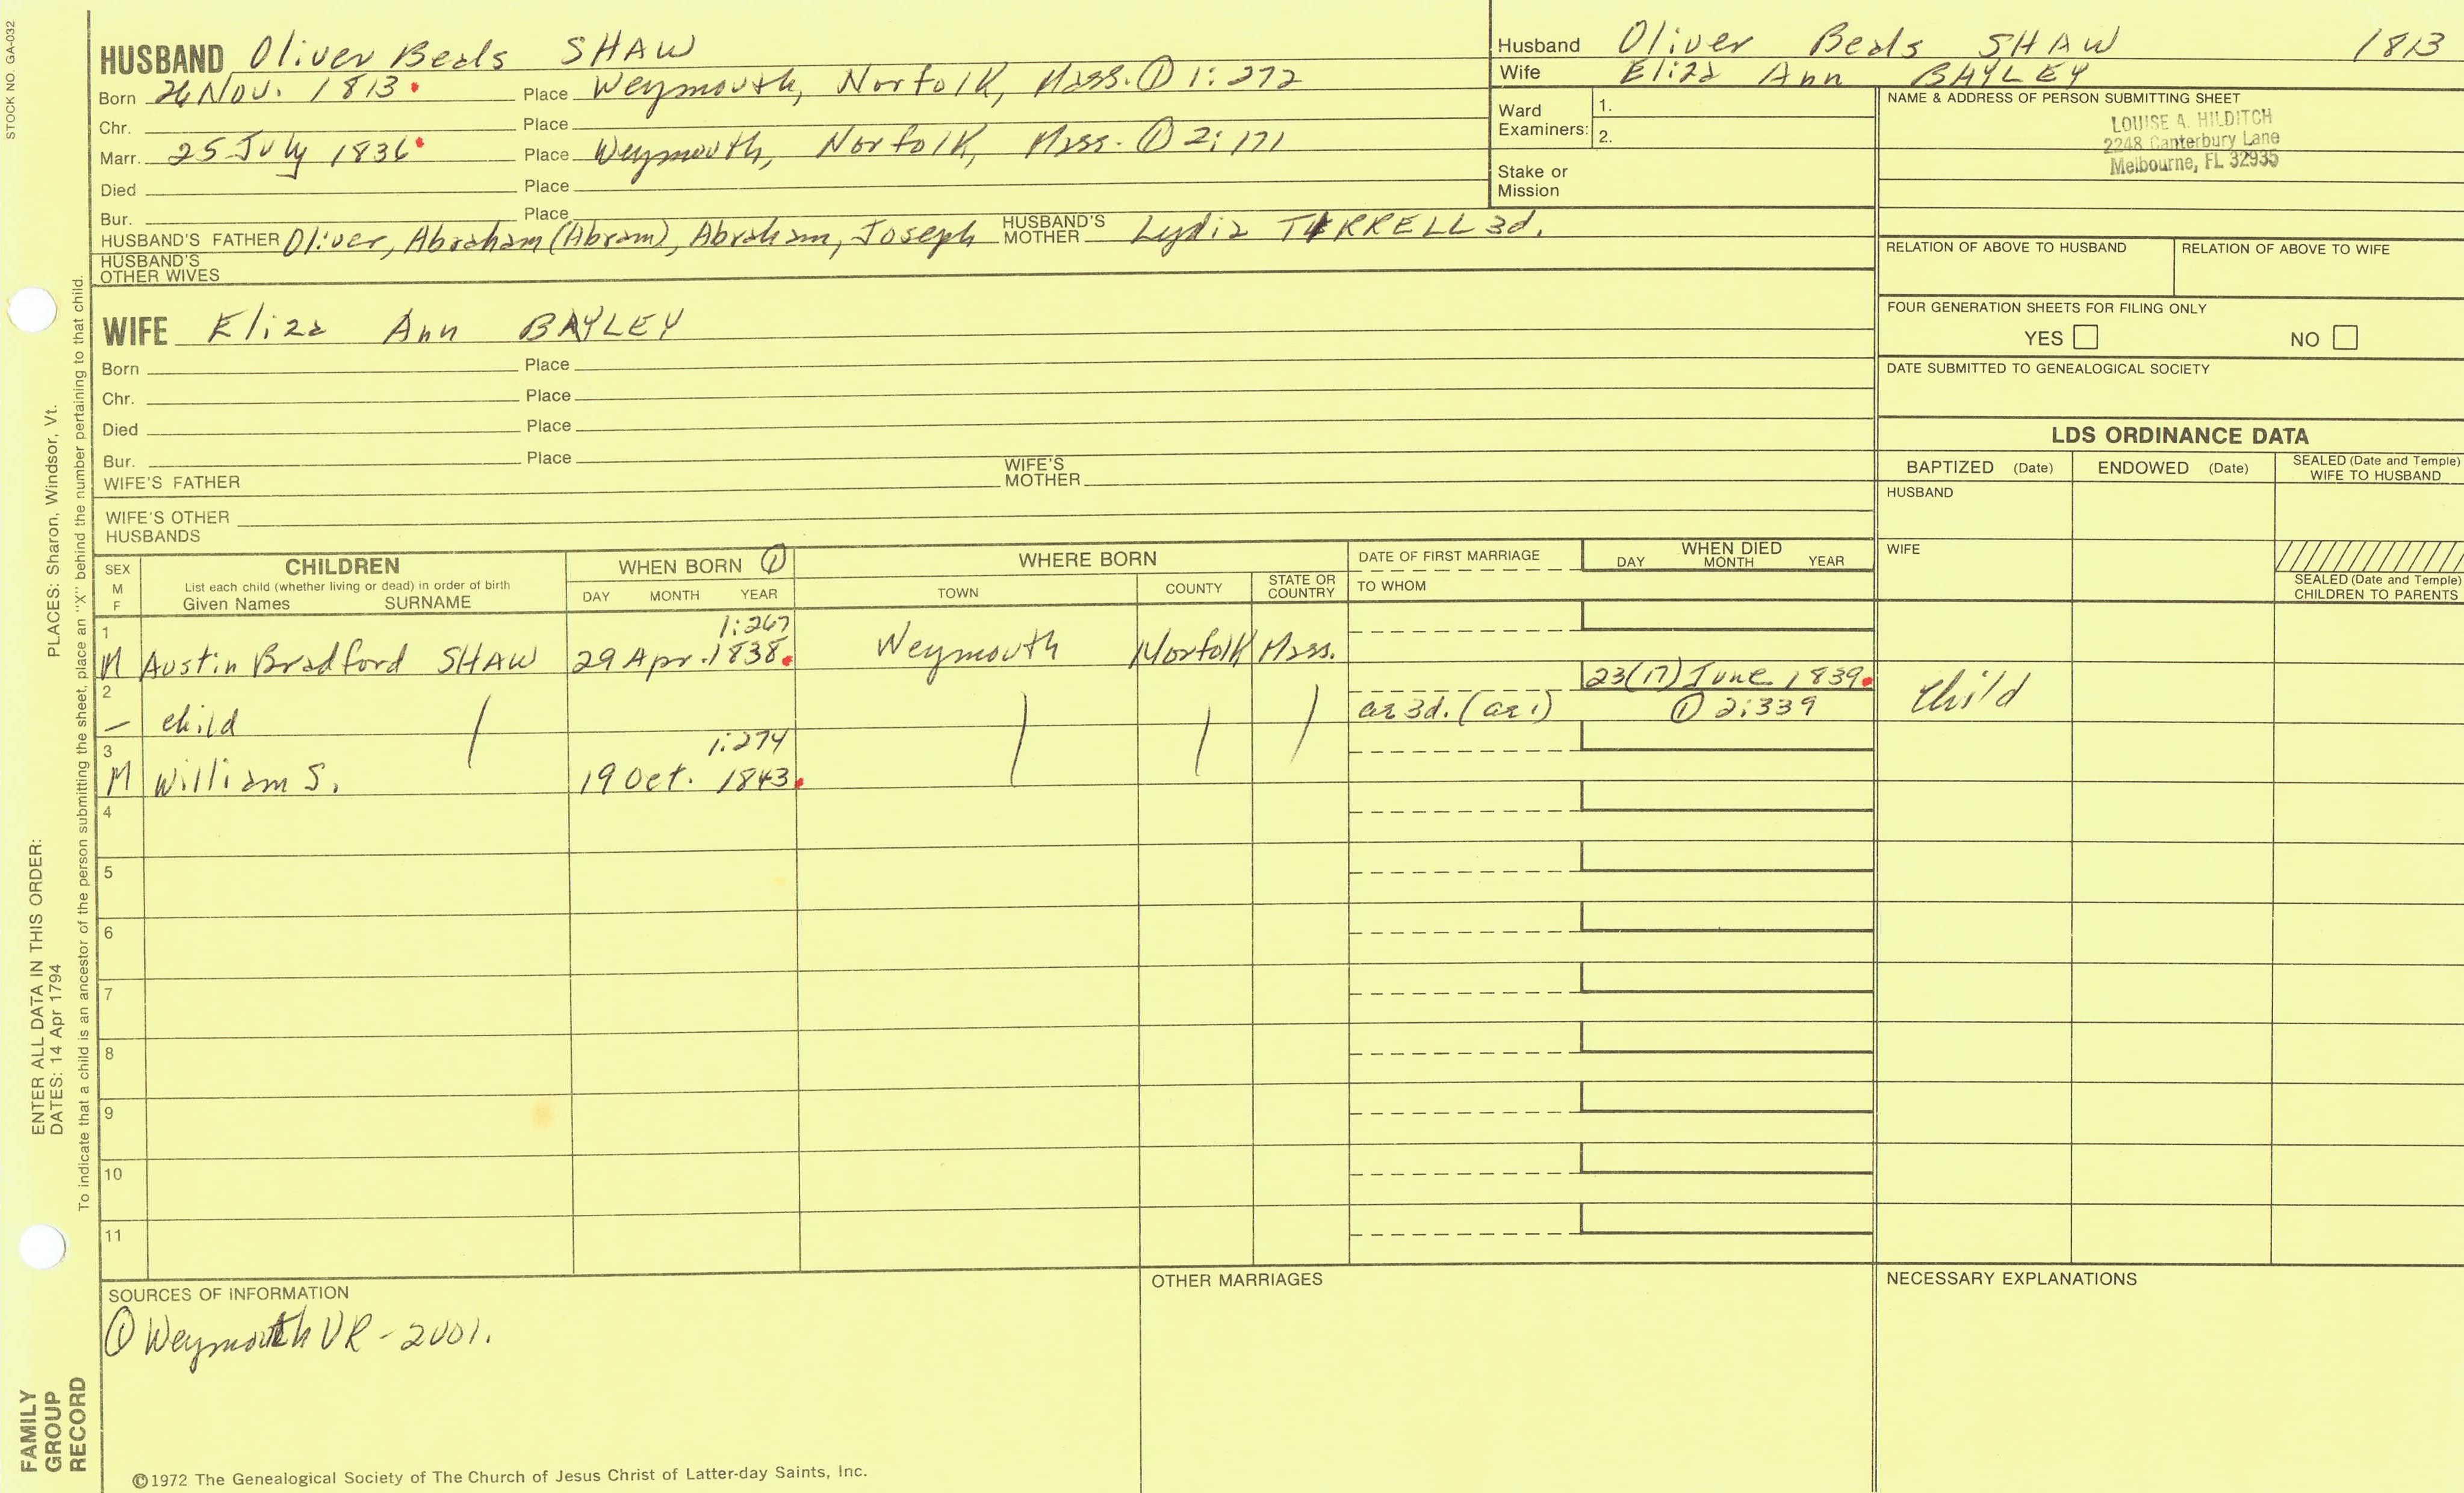 STOCK NO. GA-032
HUSBAND Oliver Beals SHAW
Born 26 Nov. 1813. Place Weymouth, Norfolk, Mass. ① 1:272
Chr. Place
Marr. 25 July 1836 Place Weymouth, Norfolk, Mass. ① 2:171
Died Place
Bur. Place
HUSBAND'S FATHER Oliver, Abraham (Abram), Abraham, Joseph HUSBAND'S MOTHER Lydia TIRRELL 3d.
HUSBAND'S OTHER WIVES
Husband Oliver Beals SHAW 1813
Wife Eliza Ann BAYLEY
Ward Examiners: 1.
2.
Stake or Mission
NAME & ADDRESS OF PERSON SUBMITTING SHEET
LOUISE A. HILDITCH
2248 Canterbury Lane
Melbourne, FL 32935
RELATION OF ABOVE TO HUSBAND RELATION OF ABOVE TO WIFE
FOUR GENERATION SHEETS FOR FILING ONLY
YES NO
DATE SUBMITTED TO GENEALOGICAL SOCIETY
WIFE Eliza Ann BAYLEY
Born Place
Chr. Place
Died Place
Bur. Place
WIFE'S FATHER WIFE'S MOTHER
WIFE'S OTHER HUSBANDS
LDS ORDINANCE DATA
BAPTIZED (Date) ENDOWED (Date) SEALED (Date and Temple) WIFE TO HUSBAND
HUSBAND
WIFE
SEALED (Date and Temple) CHILDREN TO PARENTS
SEX M F
CHILDREN
List each child (whether living or dead) in order of birth
Given Names SURNAME
WHEN BORN ①
DAY MONTH YEAR
WHERE BORN
TOWN COUNTY STATE OR COUNTRY
DATE OF FIRST MARRIAGE
TO WHOM
WHEN DIED
DAY MONTH YEAR
1 1:267
M Austin Bradford SHAW 29 Apr. 1838. Weymouth Norfolk Mass.
2 23(17) June 1839.
— child ae 3d. (ae 1) ① 2:339 Child
3 1:274
M William S. 19 Oct. 1843.
4
5
6
7
8
9
10
11
SOURCES OF INFORMATION
① Weymouth VR - 2001.
OTHER MARRIAGES
NECESSARY EXPLANATIONS
©1972 The Genealogical Society of The Church of Jesus Christ of Latter-day Saints, Inc.
ENTER ALL DATA IN THIS ORDER:
DATES: 14 Apr 1794
PLACES: Sharon, Windsor, Vt.
To indicate that a child is an ancestor of the person submitting the sheet, place an "X" behind the number pertaining to that child.
FAMILY
GROUP
RECORD